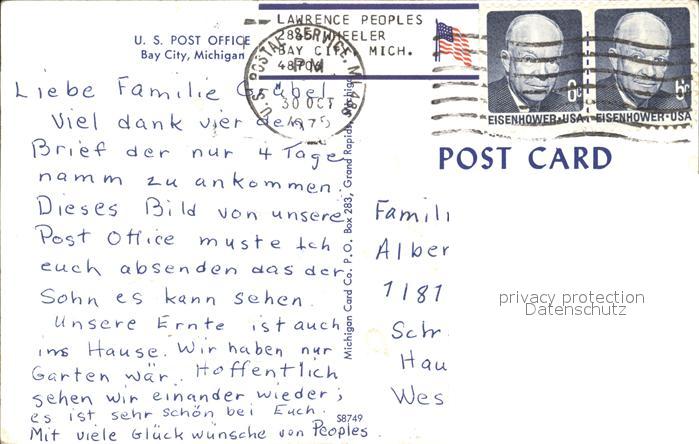 U. S. POST OFFICE
Bay City, Michigan
LAWRENCE PEOPLES
2885 WHEELER
BAY CITY, MICH.
48706
U.S. POSTAL SERVICE, MI 486
PM
30 OCT
1975
6c
EISENHOWER·USA
6c
EISENHOWER·USA
POST CARD
Liebe Familie
Viel dank vier den
Brief der nur 4 Tage
namm zu ankommen.
Dieses Bild von unsere
Post Office muste Ich
euch absenden das der
Sohn es kann sehen.
Unsere Ernte ist auch
ins Hause. Wir haben nur
Garten wär. Hoffentlich
sehen wir einander wieder;
es ist sehr schön bei Euch.
Mit viele Glückwünsche von Peoples.
S8749
Michigan Card Co. P. O. Box 283, Grand Rapids, Michigan
Famili
Alber
7181
Schr
Hau
Wes
privacy protection
Datenschutz